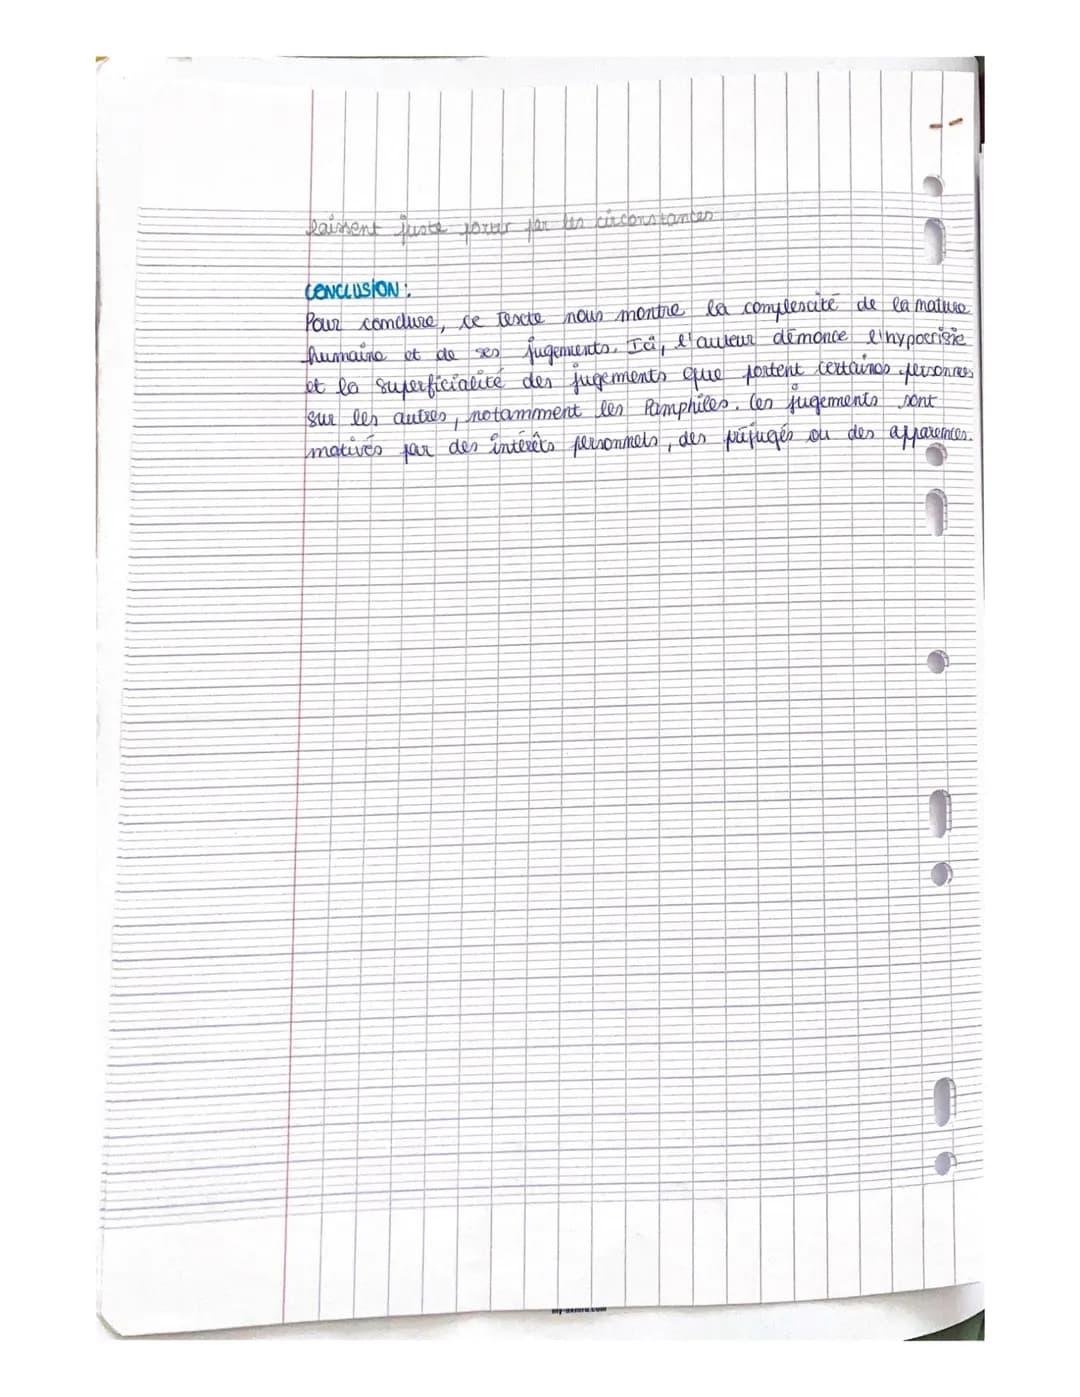 laissent juste porter par les circonstances
CONCLUSION :
Pour conclure, ce texte nous montre la complexité de la nature
humaine et de ses jugements. Ici, l'auteur dénonce l'hypocrisie
et la superficialité des jugements que portent certaines personnes
sur les autres, notamment les Pamphiles. Ces jugements sont
motivés par des intérêts personnels, des préjugés ou des apparences.